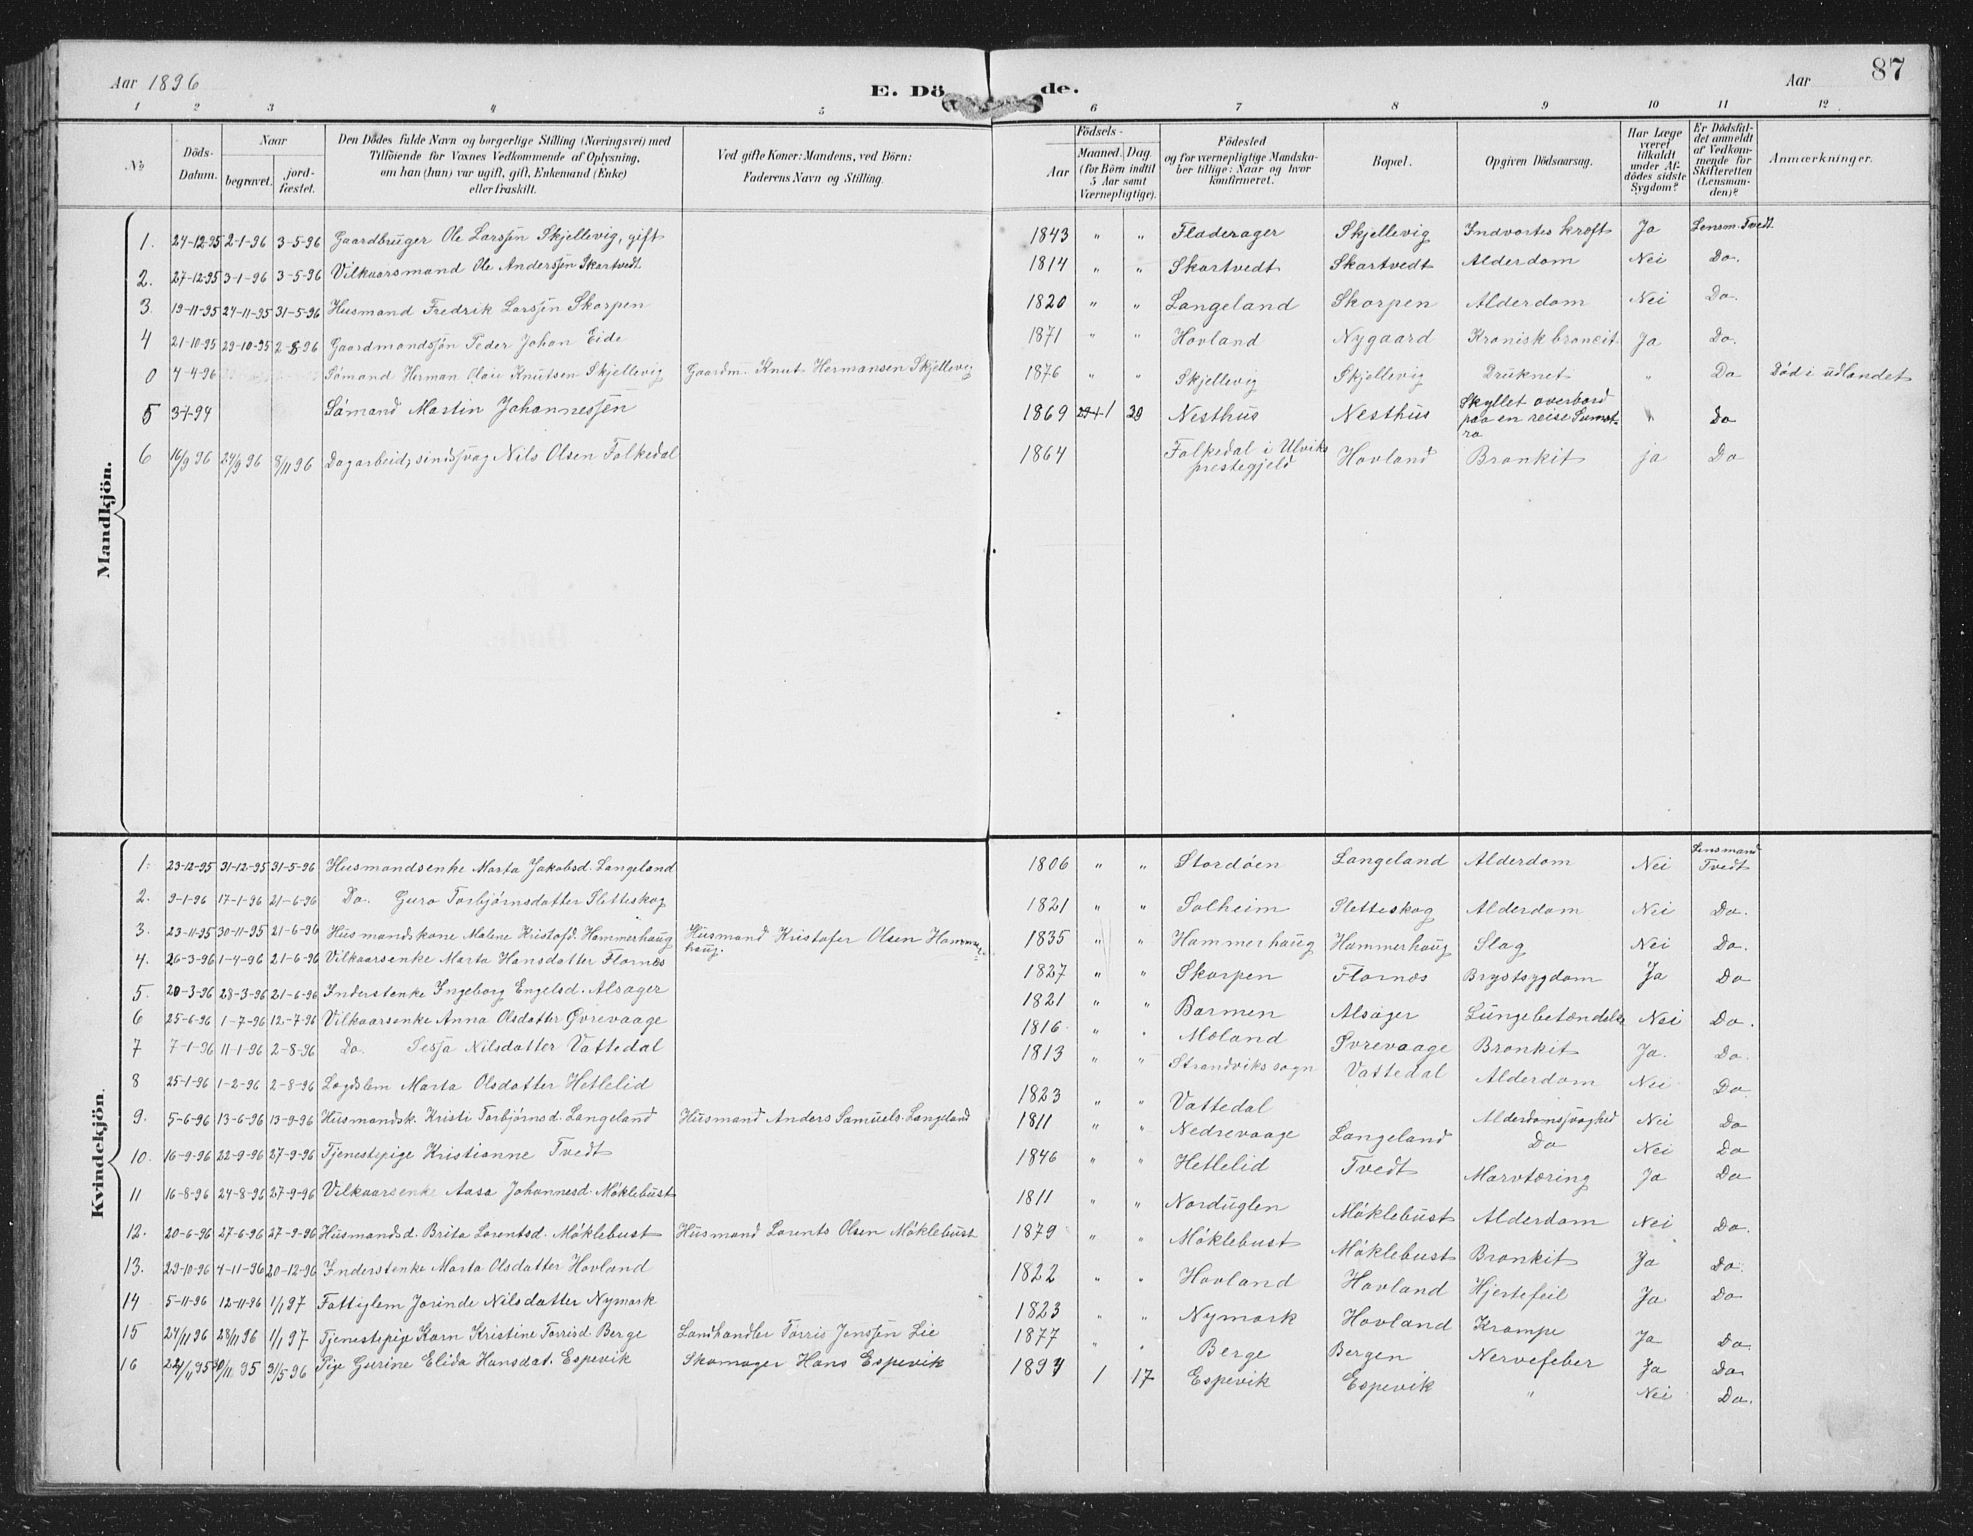 Aar 1896
E. Dö de.
Aar
87
1 2 3 4 5 6 7 8 9 10 11 12
No
Döds-Datum.
Naar
begravet.
jord-fæstet.
Den Dödes fulde Navn og borgerlige Stilling (Næringsvei) med
Tilföiende for Voxnes Vedkommende af Oplysning,
om han (hun) var ugift, gift, Enkemand (Enke)
eller fraskilt.
Ved gifte Koner: Mandens, ved Börn:
Faderens Navn og Stilling.
Födsels-
Aar
Maaned. Dag
(for Börn indtil
5 Aar samt
Værnepligtige).
Födested
og for værnepligtige Mandska-
ber tillige: Naar og hvor
konfirmeret.
Bopæl.
Opgiven Dödsaarsag.
Har Læge
været
tilkaldt
under Af-
dödes sidste
Sygdom?
Er Dödsfal-
det anmeldt
af Vedkom-
mende for
Skifteretten
(Lensman-
den)?
Anmærkninger.
Mandkjön.
1. 24-12-95 2-1-96 3-5-96 Gaardbruger Ole Larssen Skjellevig, gift 1843 " " Fladerager Skjellevig Indvortes kræft Ja Lensm. Tvedt
2. 27-12-95 3-1-96 3-5-96 Vilkaarsmand Ole Anderssen Skartvedt 1814 " " Skartvedt Skartvedt Alderdom Nei Do.
3. 19-11-95 24-11-95 31-5-96 Husmand Fredrik Larssen Skorpen 1820 " " Langeland Skorpen Alderdom Nei Do.
4 21-10-95 29-10-95 2-8-96 Gaardmandssøn Peder Johan Eide 1871 " " Hovland Nygaard Kronisk bronkit Ja Do.
0 4-4-96 Sømand Herman Olai Knutsen Skjellevig Gaardm. Knut Hermansen Skjellevig 1876 " " Skjellevig Skjellevig Druknet " Do Død i udlandet
5 94 Sømand Martin Johannessen 1869 1 20 Nesthus Nesthus Skyllet overbord
paa en reise Sumat-
ra " Do
6 16/9 96 24/9 96 8/11 96 Dagarbeid, sindssvag Nils Olsen Folkedal 1864 Folkedal i Ulviks
prestegjeld Hovland Bronkit ja Do
Kvindekjön.
1. 23-12-95 31-12-95 31-5-96 Husmandsenke Marta Jakobsd. Langeland 1806 " " Stordøen Langeland Alderdom Nei Lensmand
Tvedt
2. 9-1-96 17-1-96 21-6-96 Do. Guro Torbjørnsdatter Sletteskog 1821 " " Solheim Sletteskog Alderdom Nei Do.
3. 23-11-95 30-11-95 21-6-96 Husmandskone Malene Kristofd. Hammerhaug Husmand Kristofer Olsen Hammer-
haug. 1835 " " Hammerhaug Hammerhaug Slag Nei Do.
4. 26-3-96 1-4-96 21-6-96 Vilkaarsenke Marta Hansdatter Flornæs 1827 " " Skorpen Flornæs Brystsygdom Ja Do
5. 20-3-96 28-3-96 21-6-96 Inderstenke Ingeborg Engelsd. Alsager 1821 " " Barmen Alsager Lungebetændelse Nei Do.
6 25-6-96 1-7-96 12-7-96 Vilkaarsenke Anna Olsdatter Øvrevaage 1816 " " Moland Øvrevaage Bronkit Ja. Do.
7 7-1-96 11-1-96 2-8-96 Do. Sesja Nilsdatter Vattedal 1813 " " Strandviks sogn Vattedal Alderdom Nei Do.
8 25-1-96 1-2-96 2-8-96 Lægdslem Marta Olsdatter Hetlelid 1823 " " Vattedal Alderdomssvaghed Nei Do
9. 5-6-96 13-6-96 13-9-96 Husmandsk. Kristi Torbjørnsd. Langeland Husmand Anders Samuels. Langeland 1811 " " Nedrevaage Langeland Do Nei Do
10. 16-9-96 22-9-96 27-9-96 Tjenestepige Kristianne Tvedt 1846 " " Hetlelid Tvedt Marvtæring Ja Do
11 16-8-96 24-8-96 27-9-96 Vilkaarsenke Aasa Johannesd. Møklebust 1811 " " Norduglen Møklebust Alderdom Nei Do.
12. 20-6-96 27-6-96 27-9-96 Husmandsd. Brita Lorentsd. Møklebust Husmand Lorents Olsen Møklebust 1879 " " Møklebust Møklebust Bronkit Ja Do.
13. 29-10-96 4-11-96 20-12-96 Inderstenke Marta Olsdatter Hovland 1822 " " Hovland Hovland Hjertefeil Ja Do
14 5-11-96 12-11-96 1/1 97 Fattiglem Jorinde Nilsdatter Nymark 1823 " " Nymark Hovland Krampe Ja Do
15 24/11 96 28/11 96 1/1 97 Tjenestepige Karn Kristine Torrisd Berge Landhandler Torris Jenssen Lie 1877 " " Berge Bergen Nervefeber Ja Do
16 22/11 95 30/11 95 31/5 96 Pige Gurine Elida Hansdat. Espevik Skomager Hans Espevik 1894 1 17 Espevik Espevik " Nei Do.